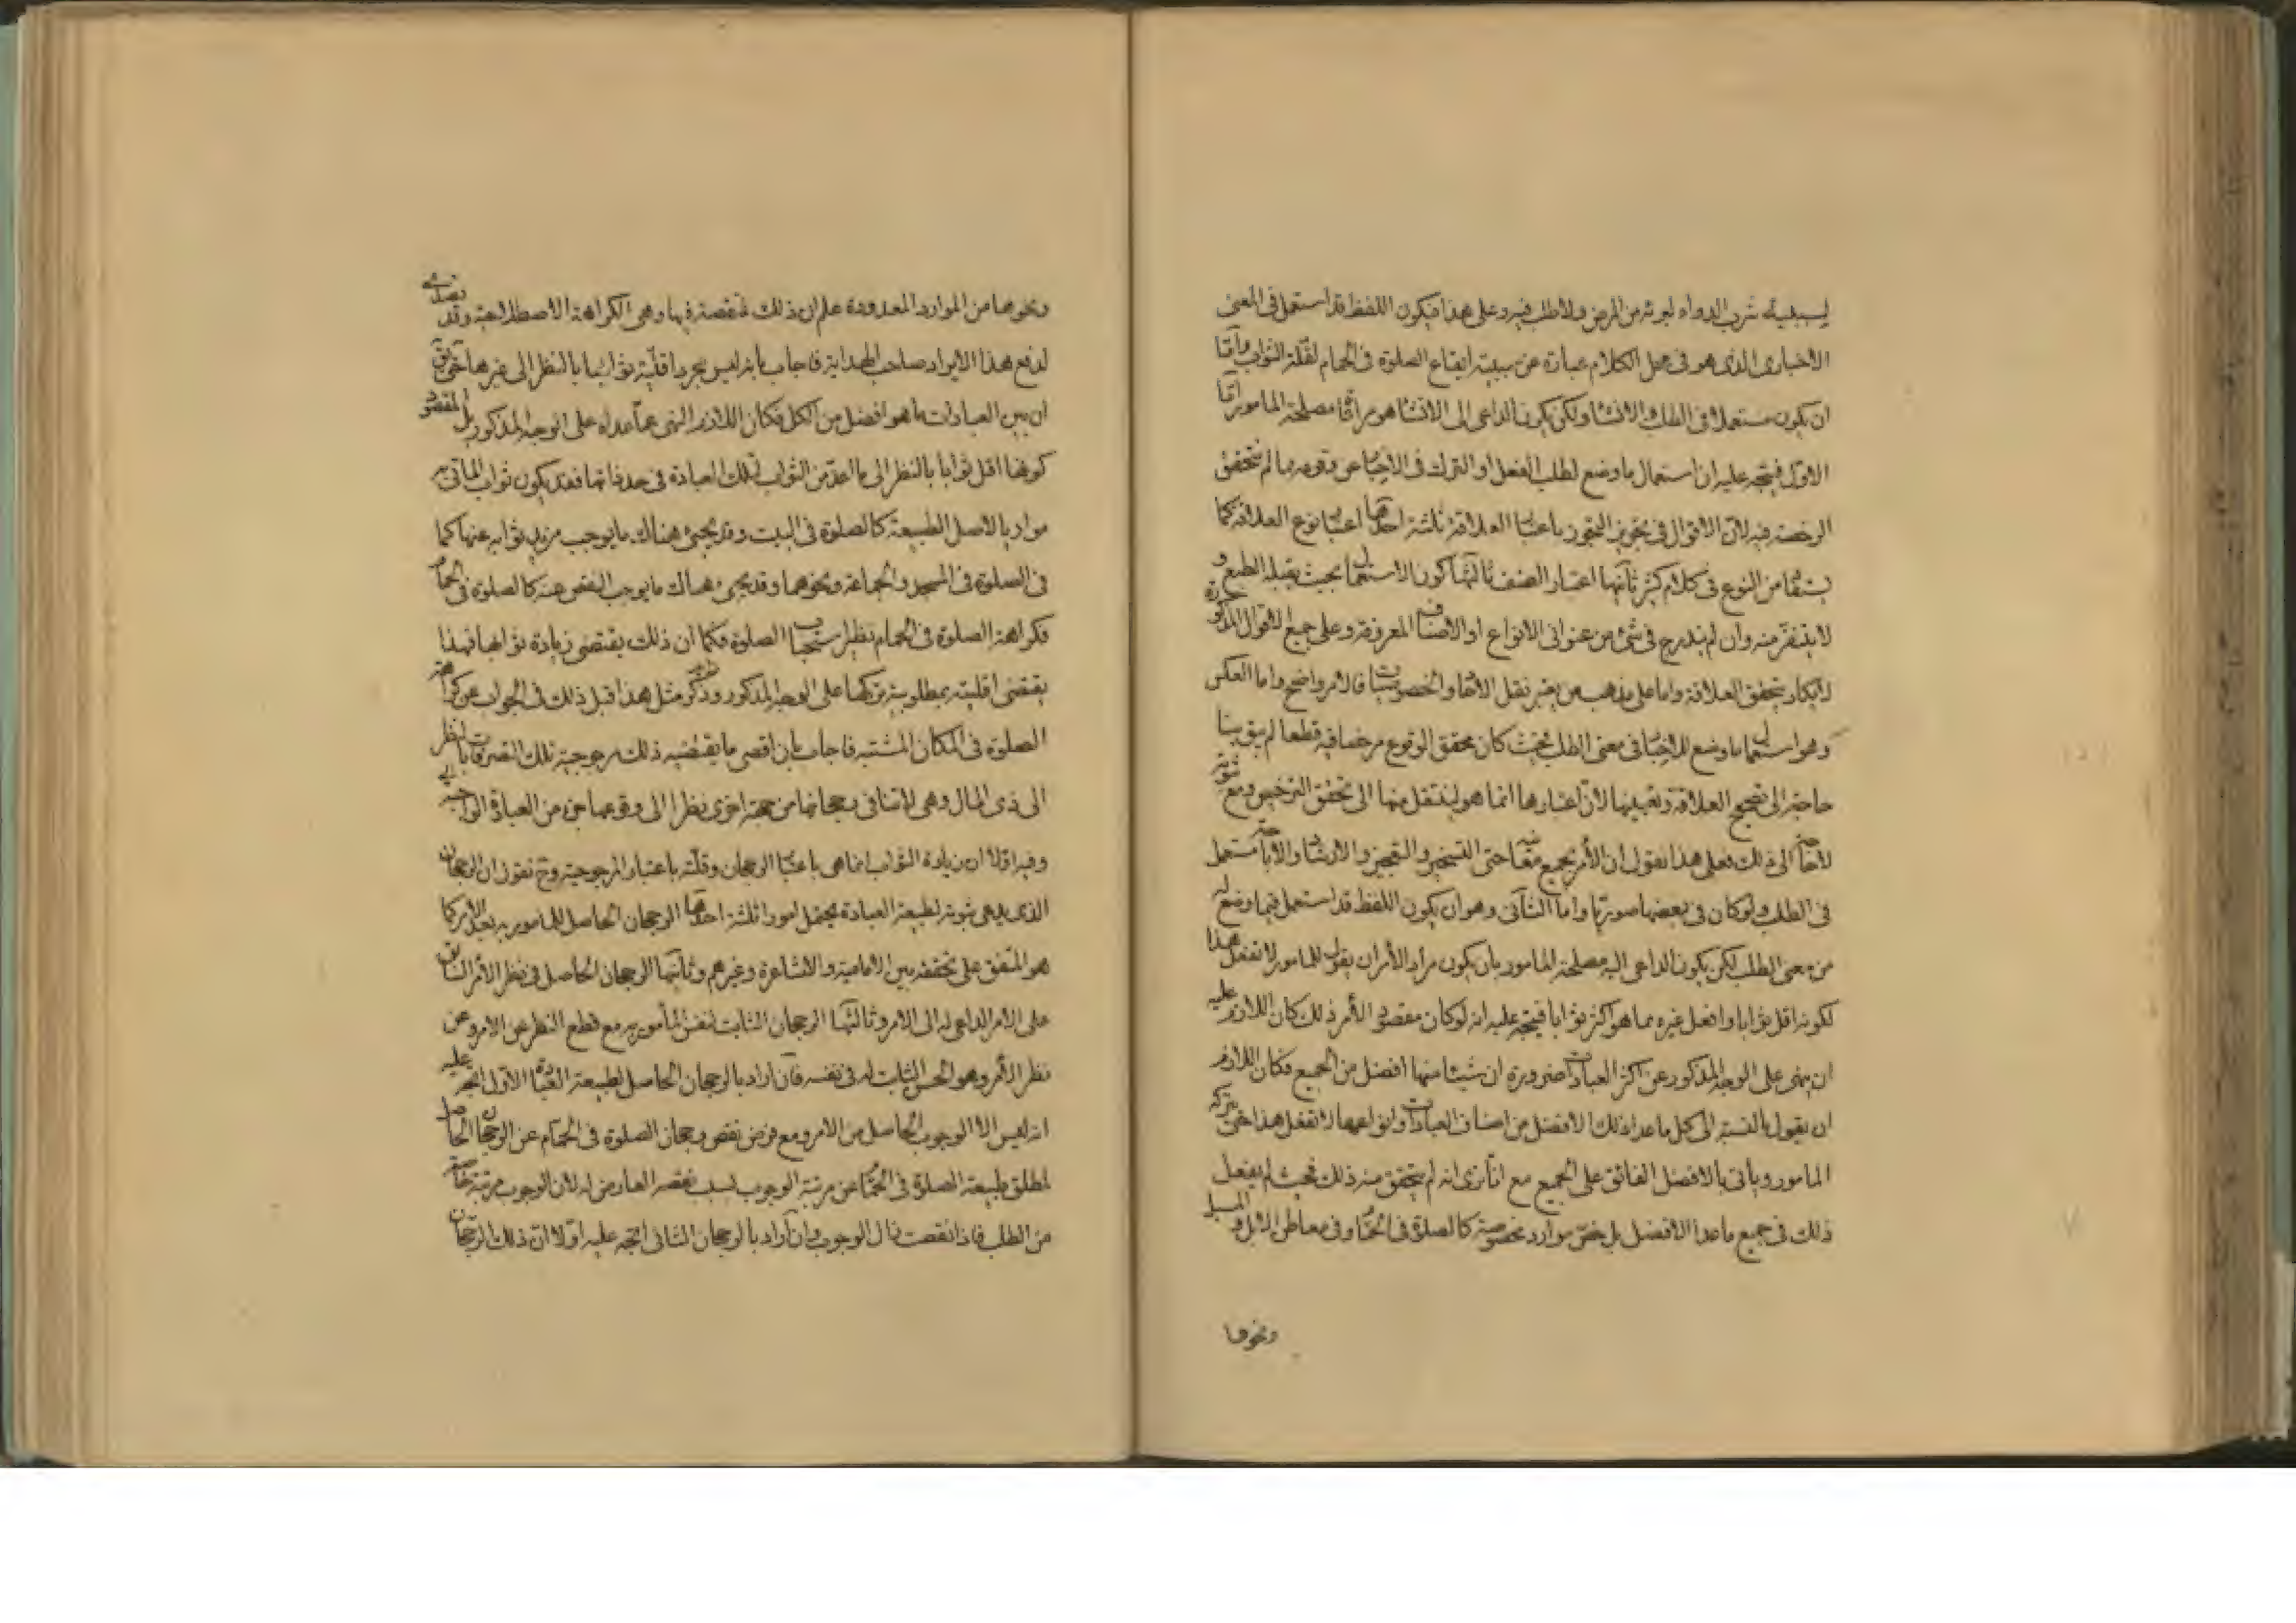 لسببية شرب الدواء لبرئه من المرض ولا طلب فيه وعلى هذا فيكون اللفظ قد استعمل فى المعنى
الاخبارى الذى هو فى محل الكلام عبارة عن سببية ايقاع الصلوة فى الحمام لقلة الثواب واما
ان يكون مستعملا فى الطلب والانشا ولكن يكون الداعى الى الانشا هو مصلحة المامور اما
الاول فيتجه عليه ان استعمال ما وضع لطلب الفعل او الترك فى الاخبار عن وقوعه مما لم يتحقق
الرخصة فيه لان الاقوال فى تجويز التجوز باعتبار العلاقة ثلثة احدها اعتبار نوع العلاقة كما
من النوع فى كلام كثير ثانيها اعتبار الصنف ثالثها كون الاستعمال بحيث يقبله الطبع و
لا يتنفر منه وان لم يندرج فى شئ من عنوانى الانواع او الاصناف المعروفة وعلى جميع الاقوال المذكورة
لا يكاد يتحقق العلاقة واما على مذهب من يعتبر نقل الاحاد والخصوصيات فالامر واضح واما العكس
وهو استعمال ما وضع للاخبار فى معنى الطلب فحيث كان محقق الوقوع مرخصا فيه قطعا لم يبق بنا
حاجة الى تصحيح العلاقة وتعيينها لان اعتبارها انما هو لينتقل منها الى تحقق الترخيص ومع ثبوته
لا حاجة الى ذلك فعلى هذا نقول ان الأمر بجميع معانيه حتى التسخير والتعجيز والارشاد والاباحة مستعمل
فى الطلب ولو كان فى بعضها صوريا واما الثانى وهو ان يكون اللفظ قد استعمل فيما وضع له
من معنى الطلب لكن يكون الداعى اليه مصلحة المامور بان يكون مراد الأمر ان يقول للمامور لا تفعل هذا
لكونه اقل ثوابا وافعل غيره مما هو اكثر ثوابا فيتجه عليه انه لو كان مقصود الأمر ذلك كان اللازم عليه
ان ينهى على الوجه المذكور عن اكثر العبادات ضرورة ان شيئا منها افضل من الجميع فكان اللازم
ان يقول بالنسبة الى كل ما عدا ذلك الافضل من اصناف العبادات وانواعها لا تفعل هذا حتى يتركه
المامور ويأتى بالافضل الفائق على الجميع مع انا نرى انه لم يتحقق منه ذلك فحيث لم يفعل
ذلك فى جميع ما عدا الافضل بل خص موارد مخصوصة كالصلوة فى الحمام وفى معاطن الابل و المسيل
ونحوها
ونحوها من الموارد المعدودة علم ان ذلك لمنقصة فيها وهى الكراهة الاصطلاحية وقد تصدى
لدفع هذا الايراد صاحب الهداية فاجاب بانه ليس مجرد اقلية ثوابها بالنظر الى غيرها حتى يق
ان بين العبادات ما هو افضل من الكل فكان اللازم النهى عما عداه على الوجه المذكور بل المقصود
كونها اقل ثوابا بالنظر الى ما اعد من الثواب لتلك العبادة فى حد ذاتها فقد يكون ثواب الماتى به
موازيا لاصل الطبيعة كالصلوة فى البيت وقد يجئ هناك ما يوجب مزيد ثوابه عنها كما
فى الصلوة فى المسجد والجماعة ونحوهما وقد يجئ هناك ما يوجب النقص عنه كالصلوة فى الحمام
فكراهة الصلوة فى الحمام نظير استحباب الصلوة فكما ان ذلك يقتضى زيادة ثوابها فهذا
يقتضى اقليته بمطلوبية تركها على الوجه المذكور وذكر مثل هذا قبل ذلك فى الجواب عن كراهة
الصلوة فى المكان المشتبه فاجاب بان اقصى ما يقتضيه ذلك مرجوحية تلك التصرفات بالنظر
الى ذى المال وهى لا تنافى رجحانها من جهة اخرى نظرا الى وقوعها جزء من العبادة الواجبة
وفيه اولا ان زيادة الثواب انما هى باعتبار الرجحان وقلته باعتبار المرجوحية وح نقول ان الرجحان
الذى يدعى ثبوته لطبيعة العبادة يحتمل امورا ثلثة احدها الرجحان الحاصل للمامور به بعد الأمر كما
هو المتفق على تحققه بين الامامية والاشاعرة وغيرهم وثانيها الرجحان الحاصل فى نظر الأمر السابق
على الامر الداعى له الى الامر وثالثها الرجحان الثابت لنفس المأمور به مع قطع النظر عن الامر وعن
نظر الأمر وهو الحسن الثابت له فى نفسه فان اراد بالرجحان الحاصل لطبيعة العبادة الاول اتجه عليه
انه ليس الا الوجوب الحاصل من الامر ومع فرض نقص رجحان الصلوة فى الحمام عن الرجحان الحاصل
لمطلق طبيعة الصلوة فى الحمام عن مرتبة الوجوب بسبب نقصه العارض له لان الوجوب مرتبة خاصة
من الطلب فاذا نقصت زال الوجوب وان اراد بالرجحان الثانى اتجه عليه اولا ان ذلك الرجحان